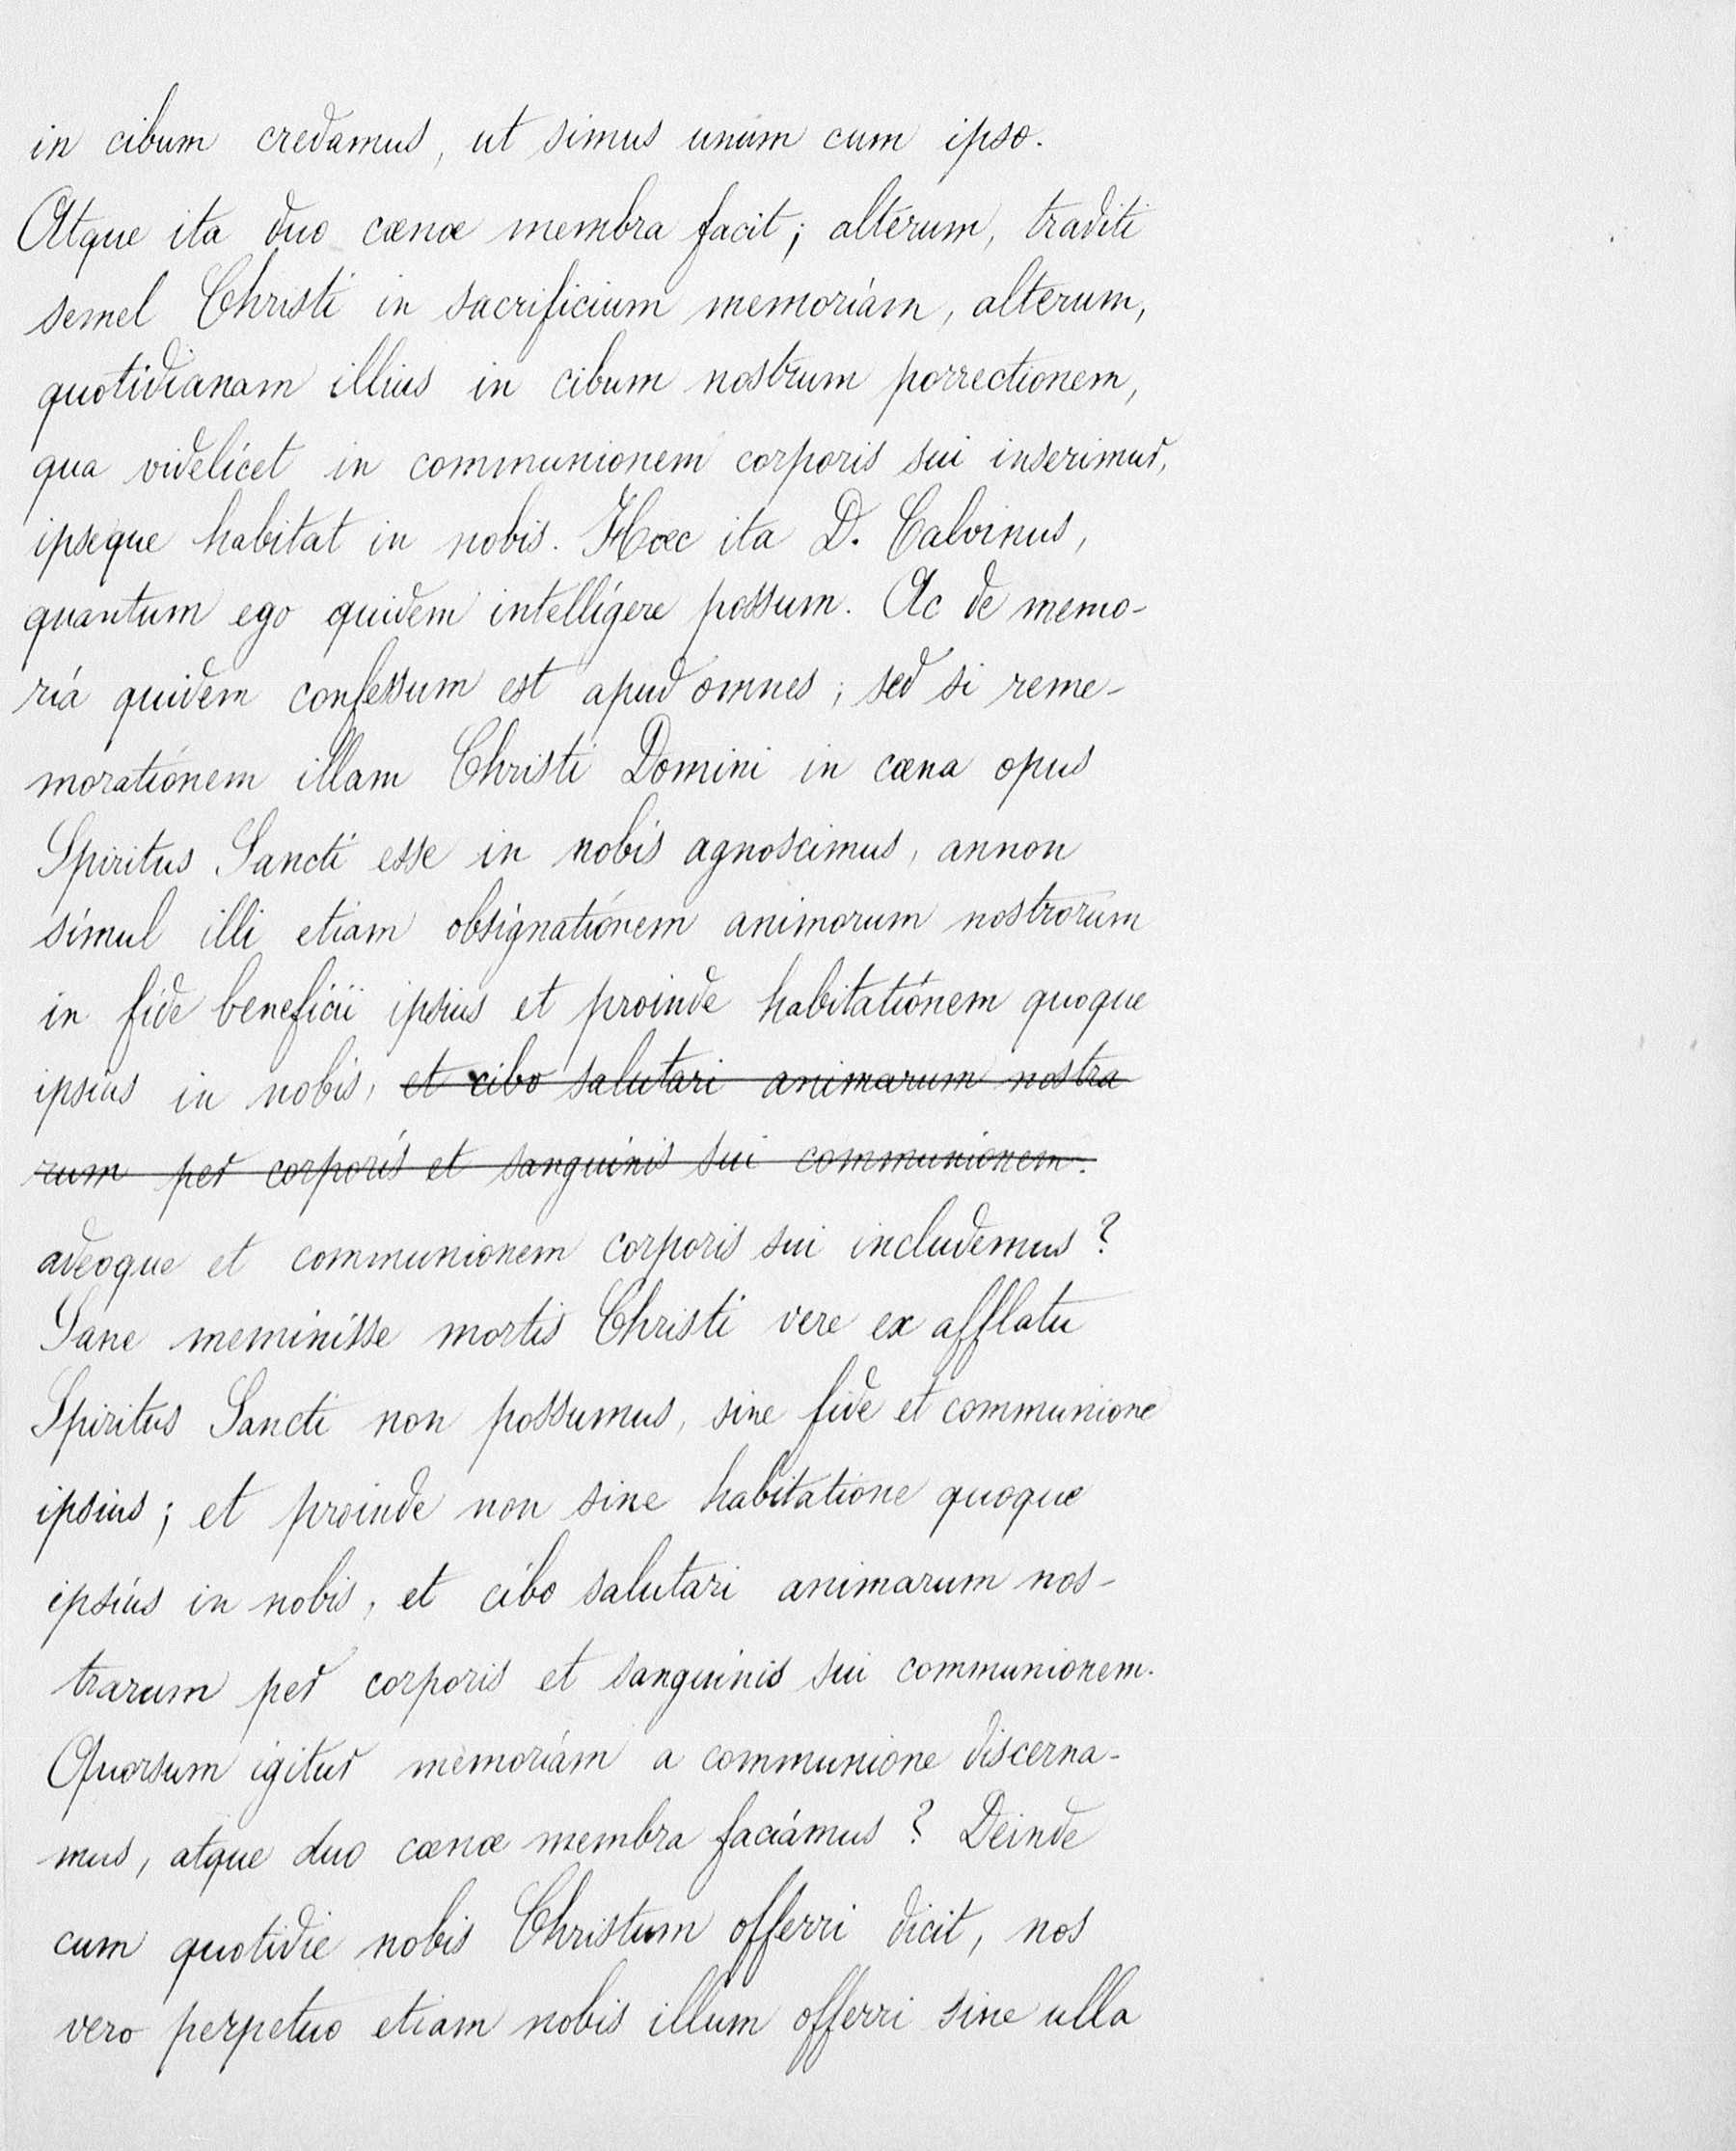 in cibum credamus, ut simus unum cum ipso.
Atque ita duo cœnœ membra facit; alterum, traditi
semel Christi in sacrificium memoriam, alterum,
quotidianam illius in cibum nostrum porrectionem,
qua videlicet in communionem corporis sui inserimur,
ipseque habitat in nobis. Hœc ita D. Calvinus,
quantum ego quidem intelligere possum. Ac de memo-
ria quidem confessum est apud omnes; sed si reme-
morationem illam Christi Domini in cœna opus
Spiritus Sancti esse in nobis agnoscimus, annon
simul illi etiam obsignationem animorum nostrorum
in fide beneficii ipsius et proinde habitationem quoque
ipsius in nobis, et cibo salutari animarum nostra
rum per corporis et sanguinis sui communionem.
adeoque et communionem corporis sui includemus?
Sane meminisse mortis Christi vere ex afflatu
Spiritus Sancti non possumus, sine fide et communione
ipsius; et proinde non sine habitatione quoque
ipsius in nobis, et cibo salutari animarum nos-
trarum per corporis et sanguinis sui communionem.
Quorsum igitur memoriam a communione discerna-
mus, atque duo cœnœ membra faciamus? Deinde
cum quotidie nobis Christum offerri dicit, nos
vero perpetuo etiam nobis illum offerri sine ulla